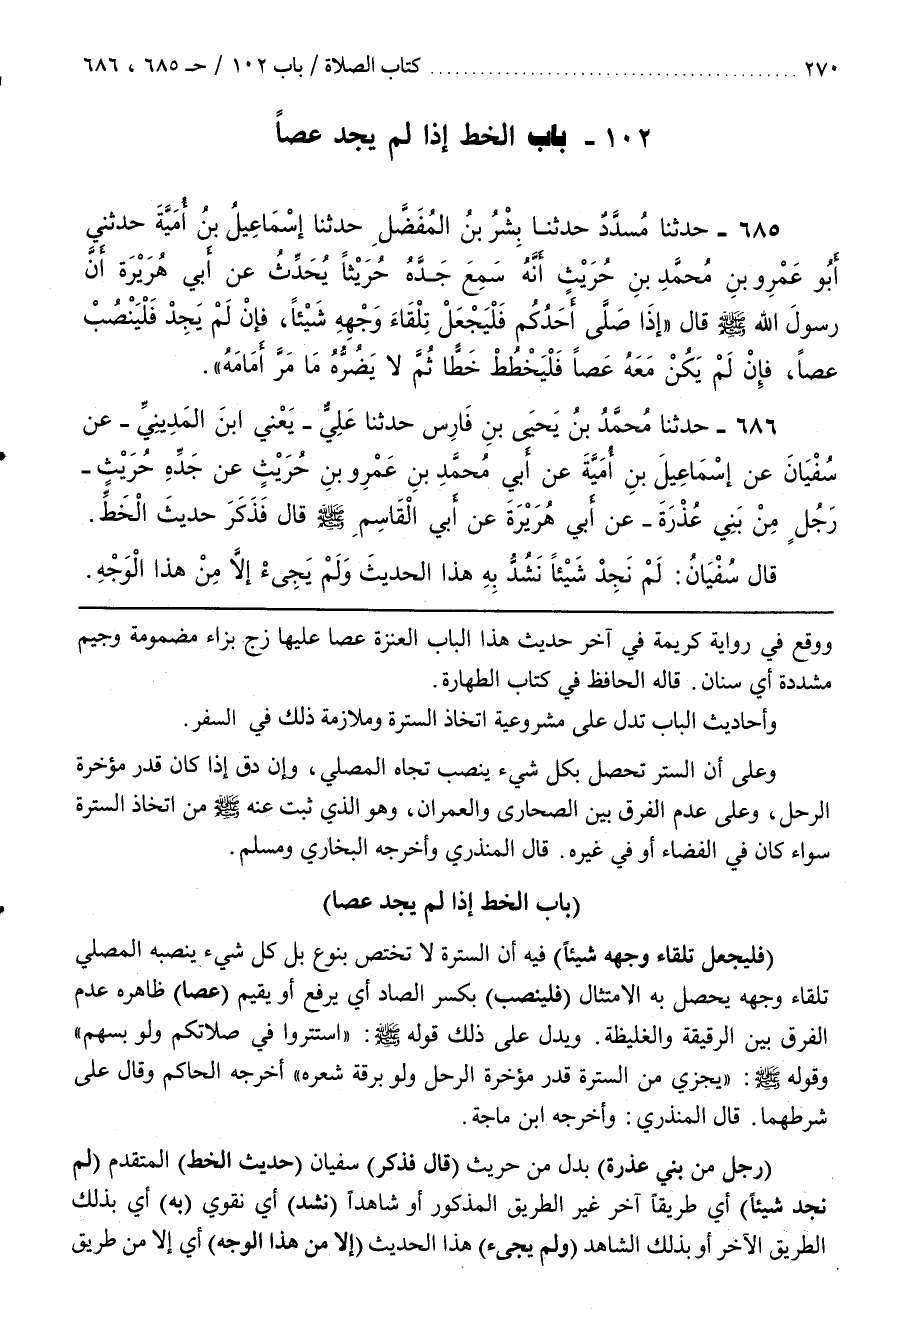 ٢٧٠ ........................................ كتاب الصلاة / باب ١٠٢ / حـ ٦٨٥ ، ٦٨٦
١٠٢ ـ باب الخط إذا لم يجد عصاً
٦٨٥ ـ حدثنا مُسدَّدٌ حدثنـا بِشْرُ بنُ المُفَضَّلِ حدثنا إسْمَاعِيلُ بنُ أُمَيَّةَ حدثني
أَبُو عَمْرِو بنِ مُحمَّدِ بنِ حُرَيْثٍ أنَّهُ سَمِعَ جَـدَّهُ حُرَيْثاً يُحَدِّثُ عن أبي هُرَيْرَةَ أنَّ
رسولَ الله ﷺ قال «إذَا صَلَّى أَحَدُكُم فَلْيَجْعَلْ تِلْقَاءَ وَجْهِهِ شَيْئاً، فإنْ لَمْ يَجِدْ فَلْيَنْصُبْ
عصاً، فإنْ لَمْ يَكُنْ مَعَهُ عَصاً فَلْيَخْطُطْ خَطًّا ثُمَّ لا يَضُرُّهُ مَا مَرَّ أَمَامَهُ».
٦٨٦ ـ حدثنا مُحمَّدُ بنُ يَحيَى بنِ فَارِس حدثنا عَلِيٌّ ـ يَعْني ابنَ المَدِينيِّ ـ عن
سُفْيَانَ عن إسْمَاعِيلَ بنِ أُمَيَّةَ عن أبي مُحمَّدِ بنِ عَمْرِو بنِ حُرَيْثٍ عن جَدِّهِ حُرَيْثٍ ـ
رَجُلٍ مِنْ بَنِي عُذْرَةَ ـ عن أبي هُرَيْرَةَ عن أبي الْقَاسِمِ ﷺ قال فَذَكَرَ حديثَ الْخَطِّ.
قال سُفْيَانُ: لَمْ نَجِدْ شَيْئاً نَشُدُّ بِهِ هذا الحديثَ وَلَمْ يَجِىءْ إلَّا مِنْ هذا الْوَجْهِ.
ووقع في رواية كريمة في آخر حديث هذا الباب العنزة عصا عليها زج بزاء مضمومة وجيم
مشددة أي سنان. قاله الحافظ في كتاب الطهارة.
وأحاديث الباب تدل على مشروعية اتخاذ السترة وملازمة ذلك في السفر.
وعلى أن الستر تحصل بكل شيء ينصب تجاه المصلي، وإن دق إذا كان قدر مؤخرة
الرحل، وعلى عدم الفرق بين الصحارى والعمران، وهو الذي ثبت عنه ﷺ من اتخاذ السترة
سواء كان في الفضاء أو في غيره. قال المنذري وأخرجه البخاري ومسلم.
(باب الخط إذا لم يجد عصا)
(فليجعل تلقاء وجهه شيئاً) فيه أن السترة لا تختص بنوع بل كل شيء ينصبه المصلي
تلقاء وجهه يحصل به الامتثال (فلينصب) بكسر الصاد أي يرفع أو يقيم (عصا) ظاهره عدم
الفرق بين الرقيقة والغليظة. ويدل على ذلك قوله ﷺ: «استتروا في صلاتكم ولو بسهم»
وقوله ﷺ: «يجزي من السترة قدر مؤخرة الرحل ولو برقة شعره» أخرجه الحاكم وقال على
شرطهما. قال المنذري: وأخرجه ابن ماجة.
(رجل من بني عذرة) بدل من حريث (قال فذكر) سفيان (حديث الخط) المتقدم (لم
نجد شيئاً) أي طريقاً آخر غير الطريق المذكور أو شاهداً (نشد) أي نقوي (به) أي بذلك
الطريق الآخر أو بذلك الشاهد (ولم يجىء) هذا الحديث (إلا من هذا الوجه) أي إلا من طريق